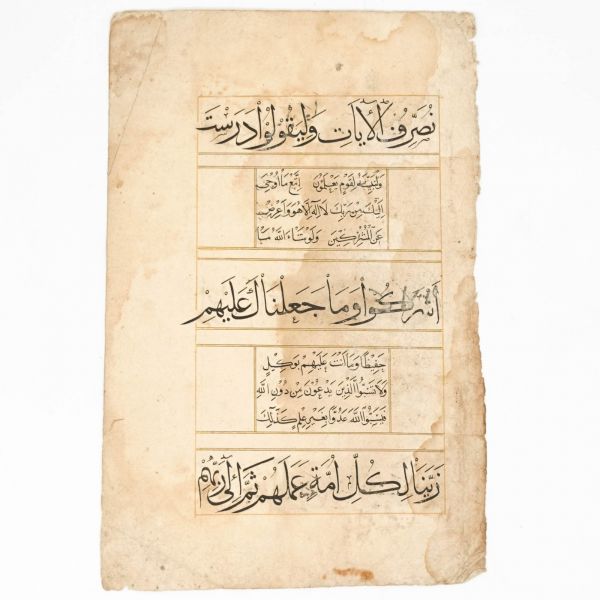 نُصَرِّفُ الْآيَاتِ وَلِيَقُولُوا دَرَسْتَ
وَلِنُبَيِّنَهُ لِقَوْمٍ يَعْلَمُونَ اتَّبِعْ مَا أُوحِيَ
إِلَيْكَ مِنْ رَبِّكَ لَا إِلَهَ إِلَّا هُوَ وَأَعْرِضْ
عَنِ الْمُشْرِكِينَ وَلَوْ شَاءَ اللَّهُ مَا
أَشْرَكُوا وَمَا جَعَلْنَاكَ عَلَيْهِمْ
حَفِيظًا وَمَا أَنْتَ عَلَيْهِمْ بِوَكِيلٍ
وَلَا تَسُبُّوا الَّذِينَ يَدْعُونَ مِنْ دُونِ اللَّهِ
فَيَسُبُّوا اللَّهَ عَدْوًا بِغَيْرِ عِلْمٍ كَذَلِكَ
زَيَّنَّا لِكُلِّ أُمَّةٍ عَمَلَهُمْ ثُمَّ إِلَى رَبِّهِمْ